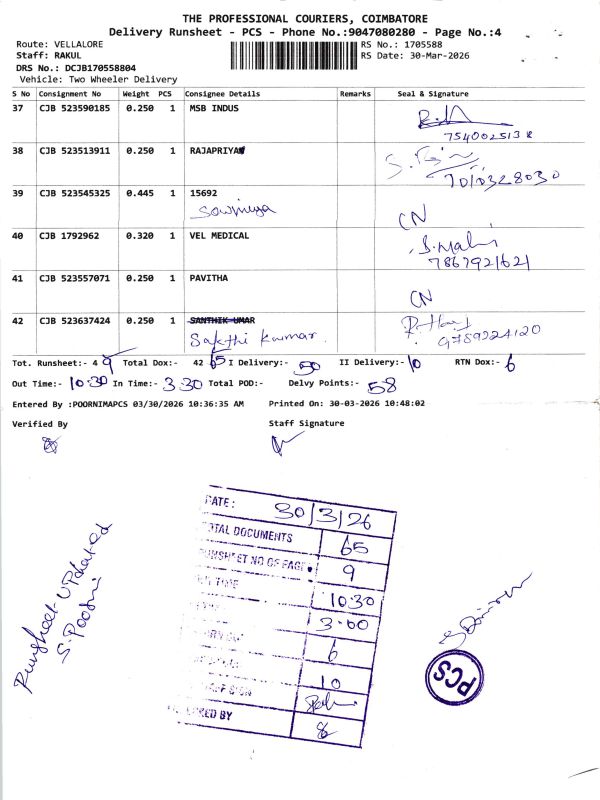 THE PROFESSIONAL COURIERS, COIMBATORE
Delivery Runsheet - PCS - Phone No.:9047080280 - Page No.:4
Route: VELLALORE RS No.: 1705588
Staff: RAKUL RS Date: 30-Mar-2026
DRS No.: DCJB170558804
Vehicle: Two Wheeler Delivery
S No Consignment No Weight PCS Consignee Details Remarks Seal & Signature
37 CJB 523590185 0.250 1 MSB INDUS
7540025138
38 CJB 523513911 0.250 1 RAJAPRIYA
7010328030
39 CJB 523545325 0.445 1 15692
Sowmiya CN
40 CJB 1792962 0.320 1 VEL MEDICAL S.Mahi
7867921621
41 CJB 523557071 0.250 1 PAVITHA CN
42 CJB 523637424 0.250 1 SANTHIK UMAR
Sakthi kumar. 9789224120
Tot. Runsheet:- 4 9 Total Dox:- 42 65 I Delivery:- 50 II Delivery:- 10 RTN Dox:- 6
Out Time:- 10:30 In Time:- 3 30 Total POD:- Delvy Points:- 58
Entered By :POORNIMAPCS 03/30/2026 10:36:35 AM Printed On: 30-03-2026 10:48:02
Verified By Staff Signature
DATE: 30/3/26
TOTAL DOCUMENTS 65
RUNSHEET NO OF PAGE 9
TIME 10:30
3:00
6
10
SIGN
BY
Runsheet Updated
S. Poorni
PCS